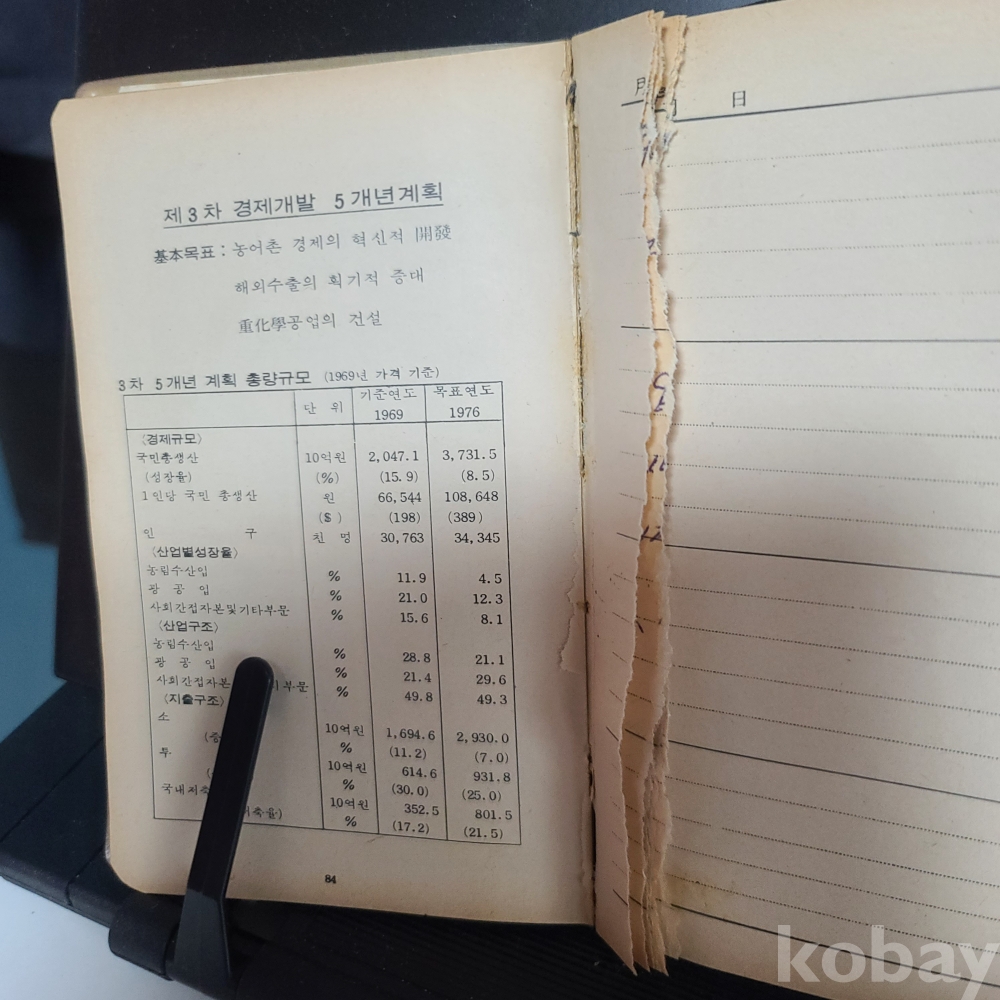 제 3 차 경제개발 5 개년계획
基本목표 : 농어촌 경제의 혁신적 開發
해외수출의 획기적 증대
重化學공업의 건설
3 차 5 개년 계획 총량규모 (1969년 가격 기준)
단 위 기준연도 1969 목표연도 1976
〈경제규모〉
국민총생산 10억원 2,047.1 3,731.5
(성장율) (%) (15.9) (8.5)
1인당 국민 총생산 원 66,544 108,648
($) (198) (389)
인 구 천 명 30,763 34,345
〈산업별성장율〉
농림수산업 % 11.9 4.5
광 공 업 % 21.0 12.3
사회간접자본및기타부문 % 15.6 8.1
〈산업구조〉
농림수산업 % 28.8 21.1
광 공 업 % 21.4 29.6
사회간접자본 부문 % 49.8 49.3
〈지출구조〉
소 10억원 1,694.6 2,930.0
% (11.2) (7.0)
투 10억원 614.6 931.8
% (30.0) (25.0)
국내저축 10억원 352.5 801.5
저축율) % (17.2) (21.5)
84
月 日
kobay